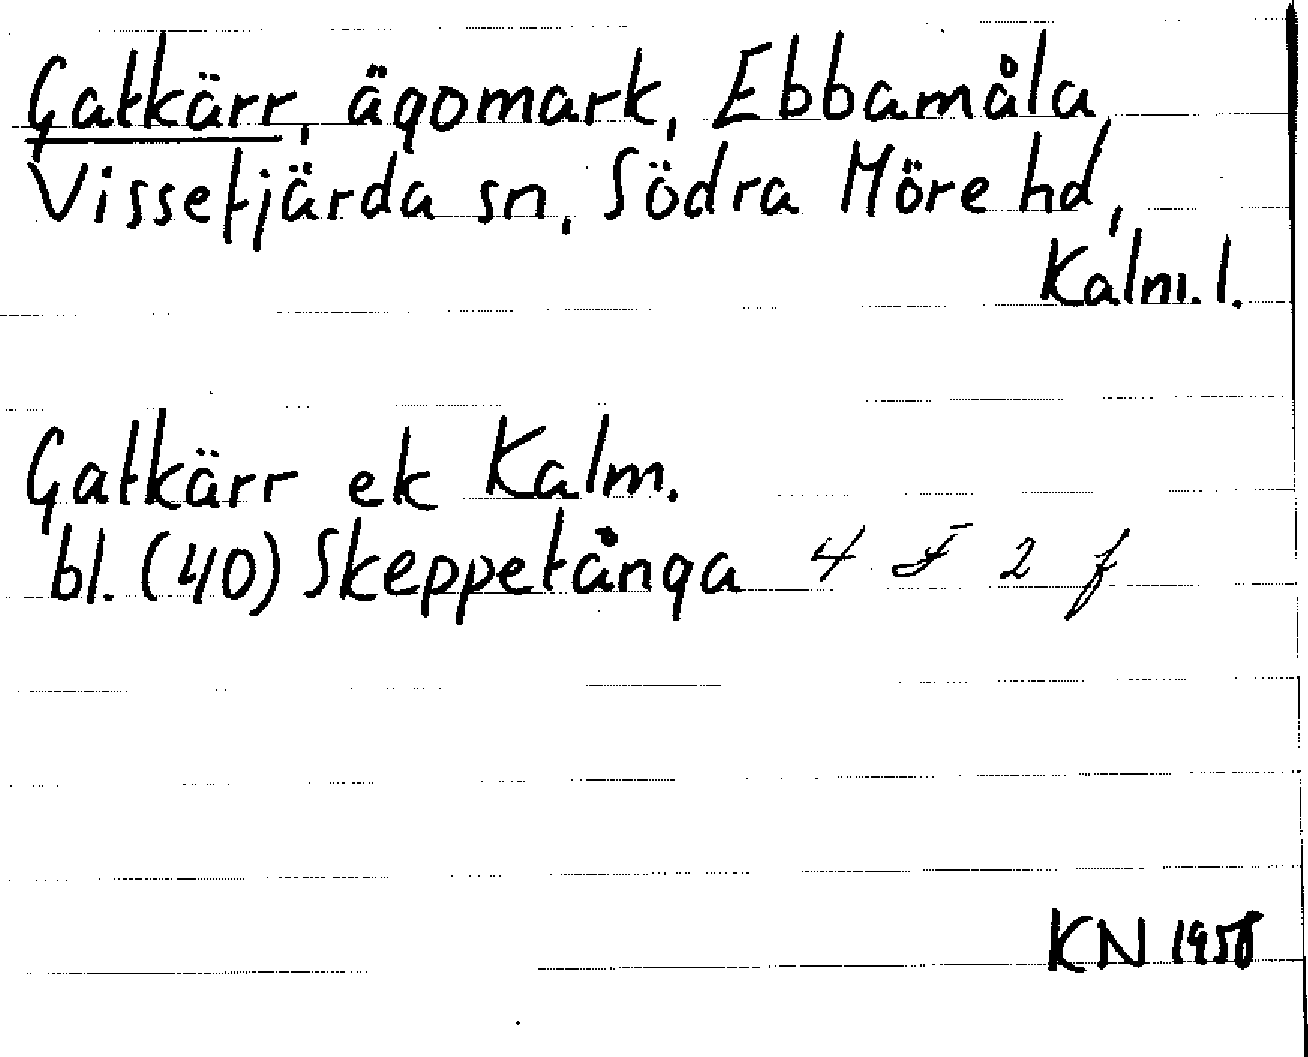 Gatkärr, ägomark, Ebbamåla,
Vissefjärda sn, Södra Möre hd,
Kalm. l.
Gatkärr ek Kalm.
bl. (40) Skeppetånga 4 F 2 f
KN